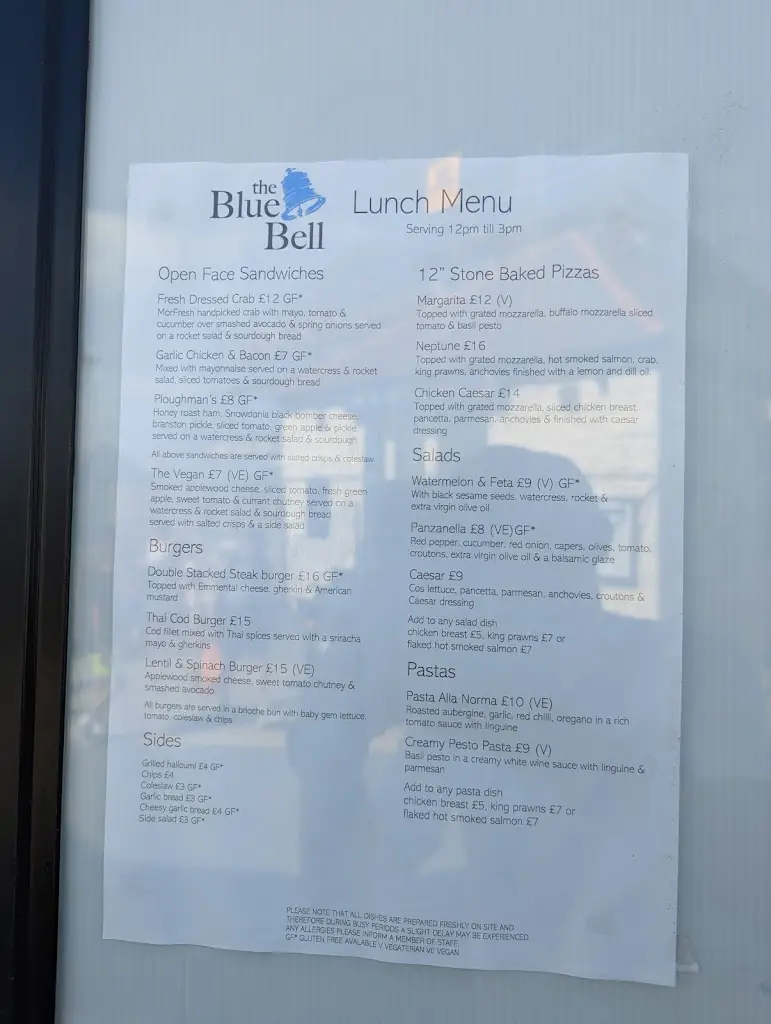 the
Blue
Bell
Lunch Menu
Serving 12pm till 3pm
Open Face Sandwiches
Fresh Dressed Crab £12 GF*
MorFresh handpicked crab with mayo, tomato &
cucumber over smashed avocado & spring onions served
on a rocket salad & sourdough bread
Garlic Chicken & Bacon £7 GF*
Mixed with mayonnaise served on a watercress & rocket
salad, sliced tomatoes & sourdough bread
Ploughman's £8 GF*
Honey roast ham, Snowdonia black bomber cheese,
branston pickle, sliced tomato, green apple & pickle
served on a watercress & rocket salad & sourdough
All above sandwiches are served with salted crisps & coleslaw
The Vegan £7 (VE) GF*
Smoked applewood cheese, sliced tomato, fresh green
apple, sweet tomato & currant chutney served on a
watercress & rocket salad & sourdough bread
served with salted crisps & a side salad
Burgers
Double Stacked Steak burger £16 GF*
Topped with Emmental cheese, gherkin & American
mustard
Thai Cod Burger £15
Cod fillet mixed with Thai spices served with a sriracha
mayo & gherkins
Lentil & Spinach Burger £15 (VE)
Applewood smoked cheese, sweet tomato chutney &
smashed avocado
All burgers are served in a brioche bun with baby gem lettuce,
tomato, coleslaw & chips
Sides
Grilled halloumi £4 GF*
Chips £4
Coleslaw £3 GF*
Garlic bread £3 GF*
Cheesy garlic bread £4 GF*
Side salad £3 GF*
12" Stone Baked Pizzas
Margarita £12 (V)
Topped with grated mozzarella, buffalo mozzarella sliced
tomato & basil pesto
Neptune £16
Topped with grated mozzarella, hot smoked salmon, crab,
king prawns, anchovies finished with a lemon and dill oil.
Chicken Caesar £14
Topped with grated mozzarella, sliced chicken breast,
pancetta, parmesan, anchovies & finished with caesar
dressing
Salads
Watermelon & Feta £9 (V) GF*
With black sesame seeds, watercress, rocket &
extra virgin olive oil
Panzanella £8 (VE)GF*
Red pepper, cucumber, red onion, capers, olives, tomato,
croutons, extra virgin olive oil & a balsamic glaze
Caesar £9
Cos lettuce, pancetta, parmesan, anchovies, croutons &
Caesar dressing
Add to any salad dish
chicken breast £5, king prawns £7 or
flaked hot smoked salmon £7
Pastas
Pasta Alla Norma £10 (VE)
Roasted aubergine, garlic, red chilli, oregano in a rich
tomato sauce with linguine
Creamy Pesto Pasta £9 (V)
Basil pesto in a creamy white wine sauce with linguine &
parmesan
Add to any pasta dish
chicken breast £5, king prawns £7 or
flaked hot smoked salmon £7
PLEASE NOTE THAT ALL DISHES ARE PREPARED FRESHLY ON SITE AND
THEREFORE DURING BUSY PERIODS A SLIGHT DELAY MAY BE EXPERIENCED
ANY ALLERGIES PLEASE INFORM A MEMBER OF STAFF.
GF* GLUTEN FREE AVALABLE V VEGATERIAN VE VEGAN